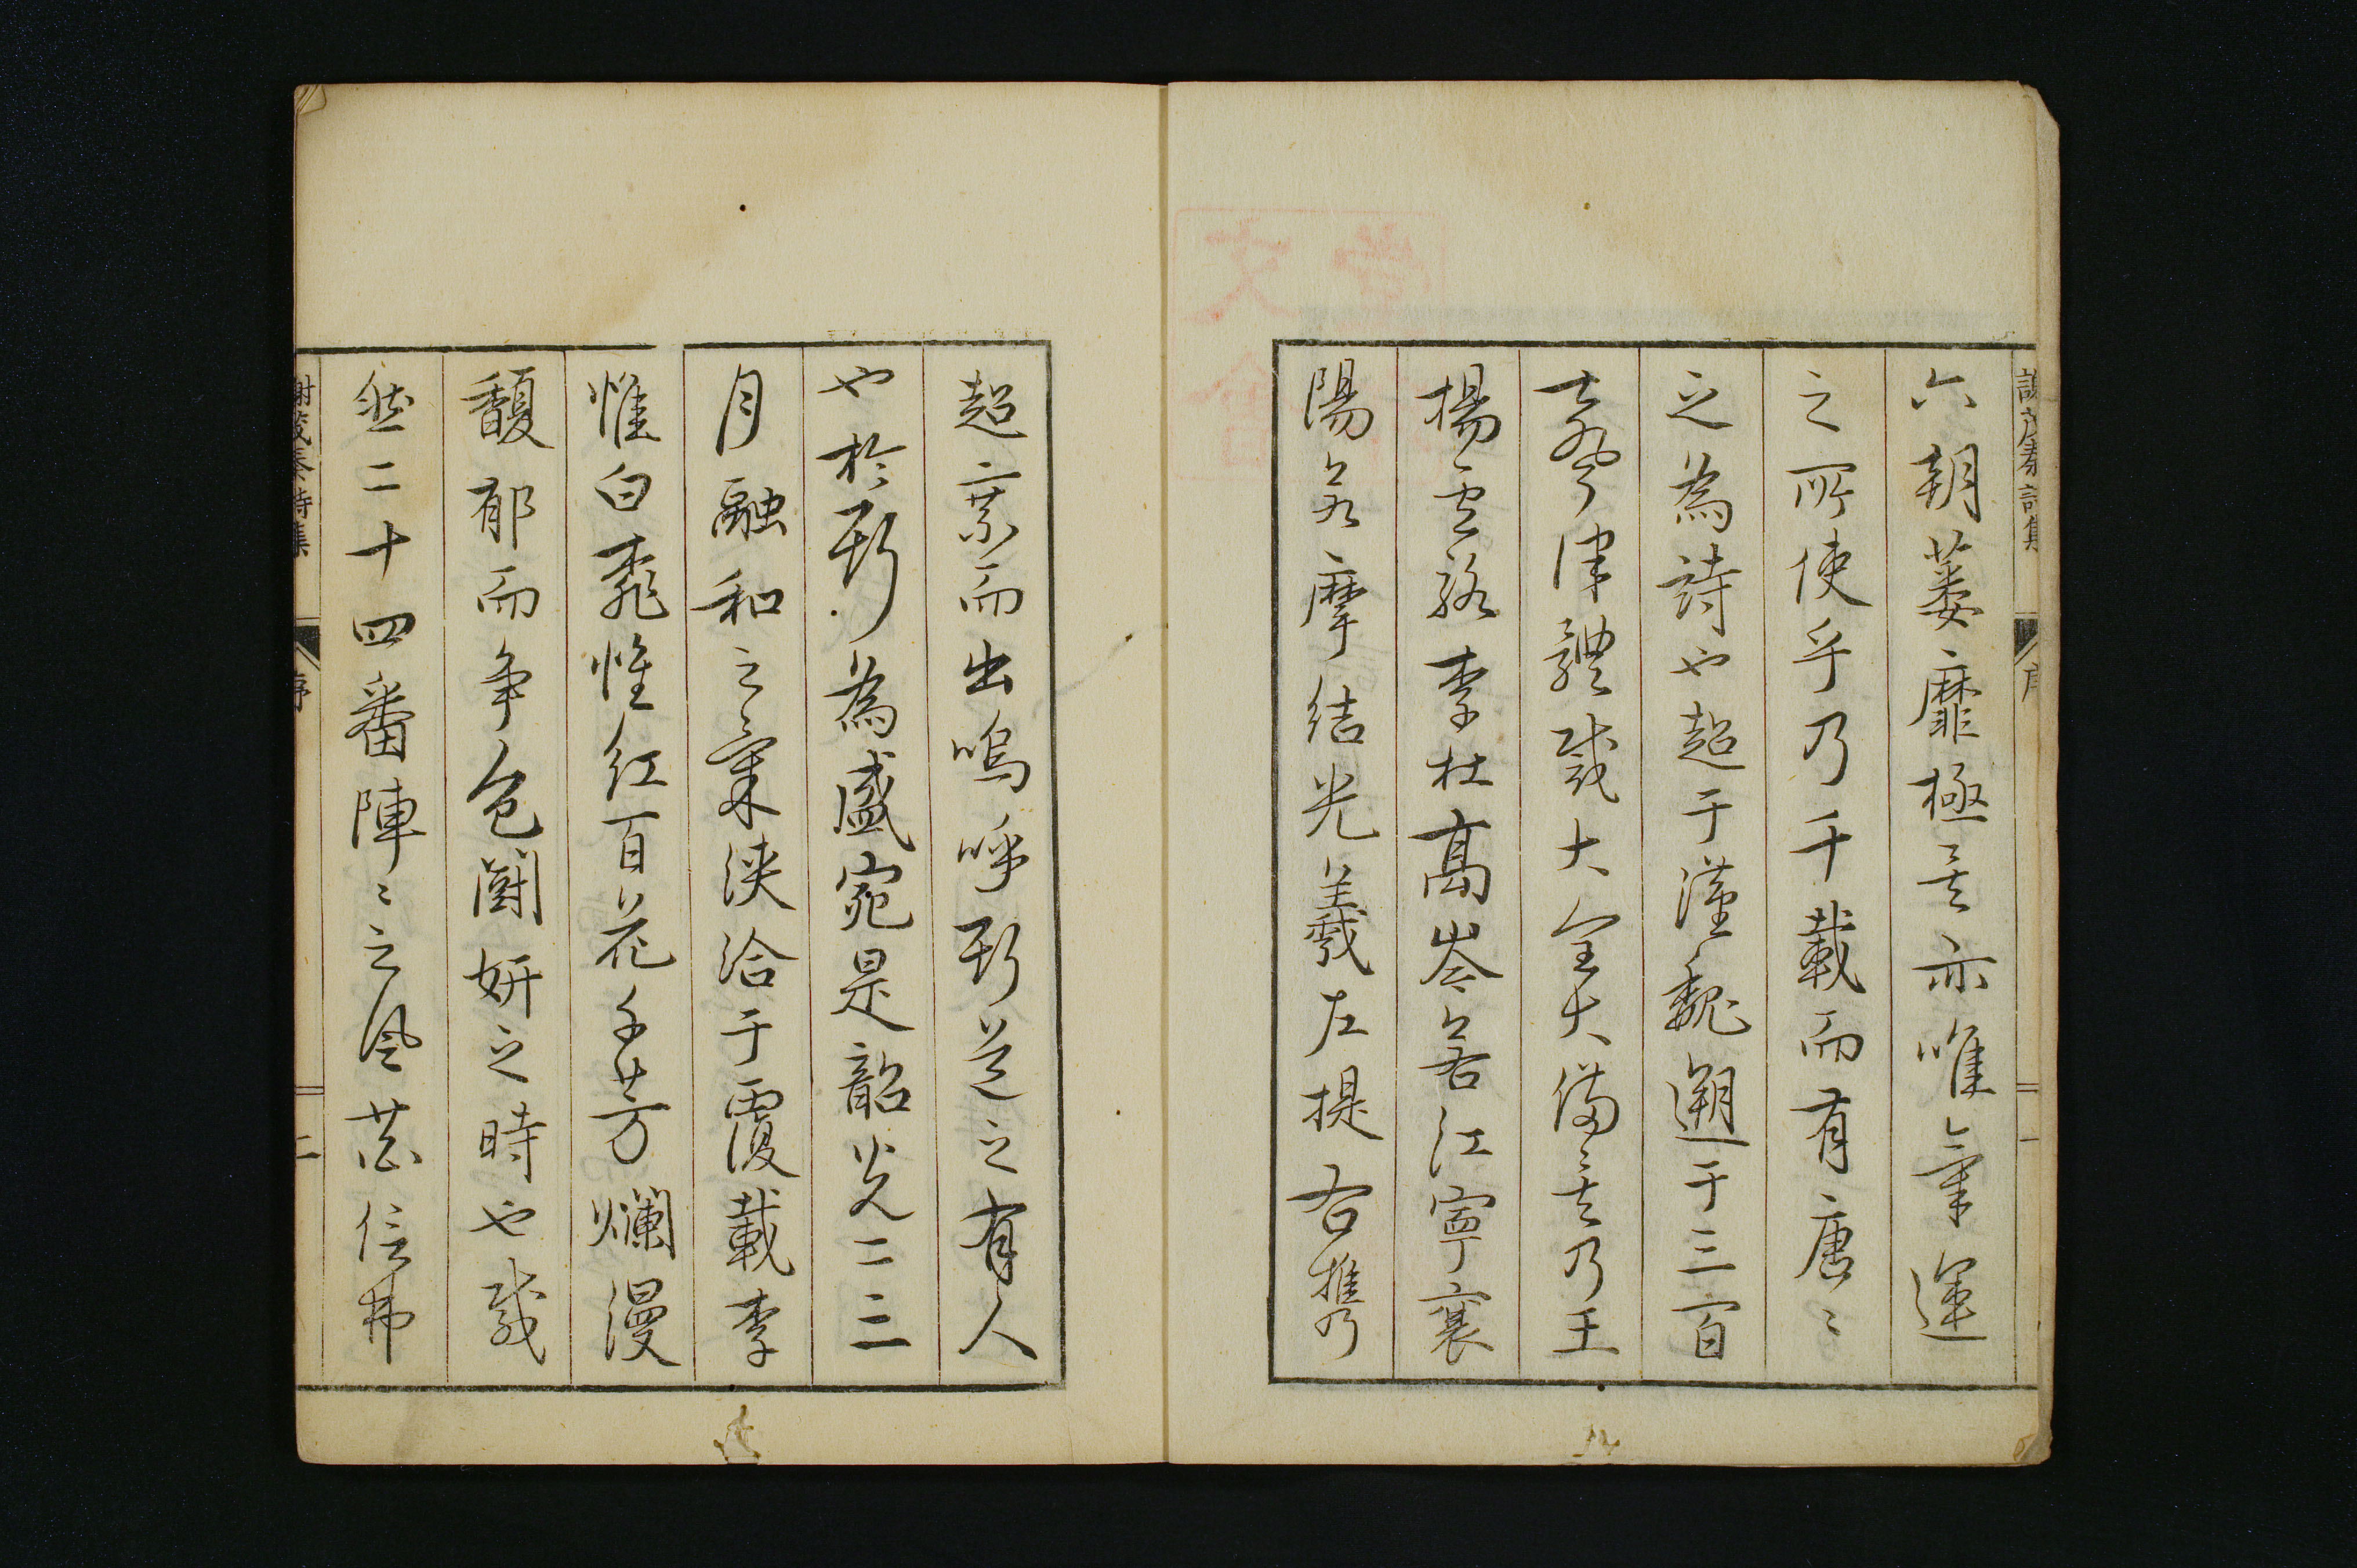 謝茂秦詩集 序 一
六朝萎靡極矣亦唯氣運
之所使乎乃千載而有唐〻
之為詩也超于漢魏遡于三百
聲律體裁大全大備矣乃王
楊盧駱李杜高岑若江寧襄
陽若摩結光羲左提右攜
超乘而出嗚呼斯道之有人
也於斯為盛宛是韶光二三
月融和之氣浹洽于覆載李
惟白桃惟紅百花千芳爛漫
馥郁而争色鬪妍之時也哉
然二十四番陣〻之風花信弗
謝茂秦詩集 序 二